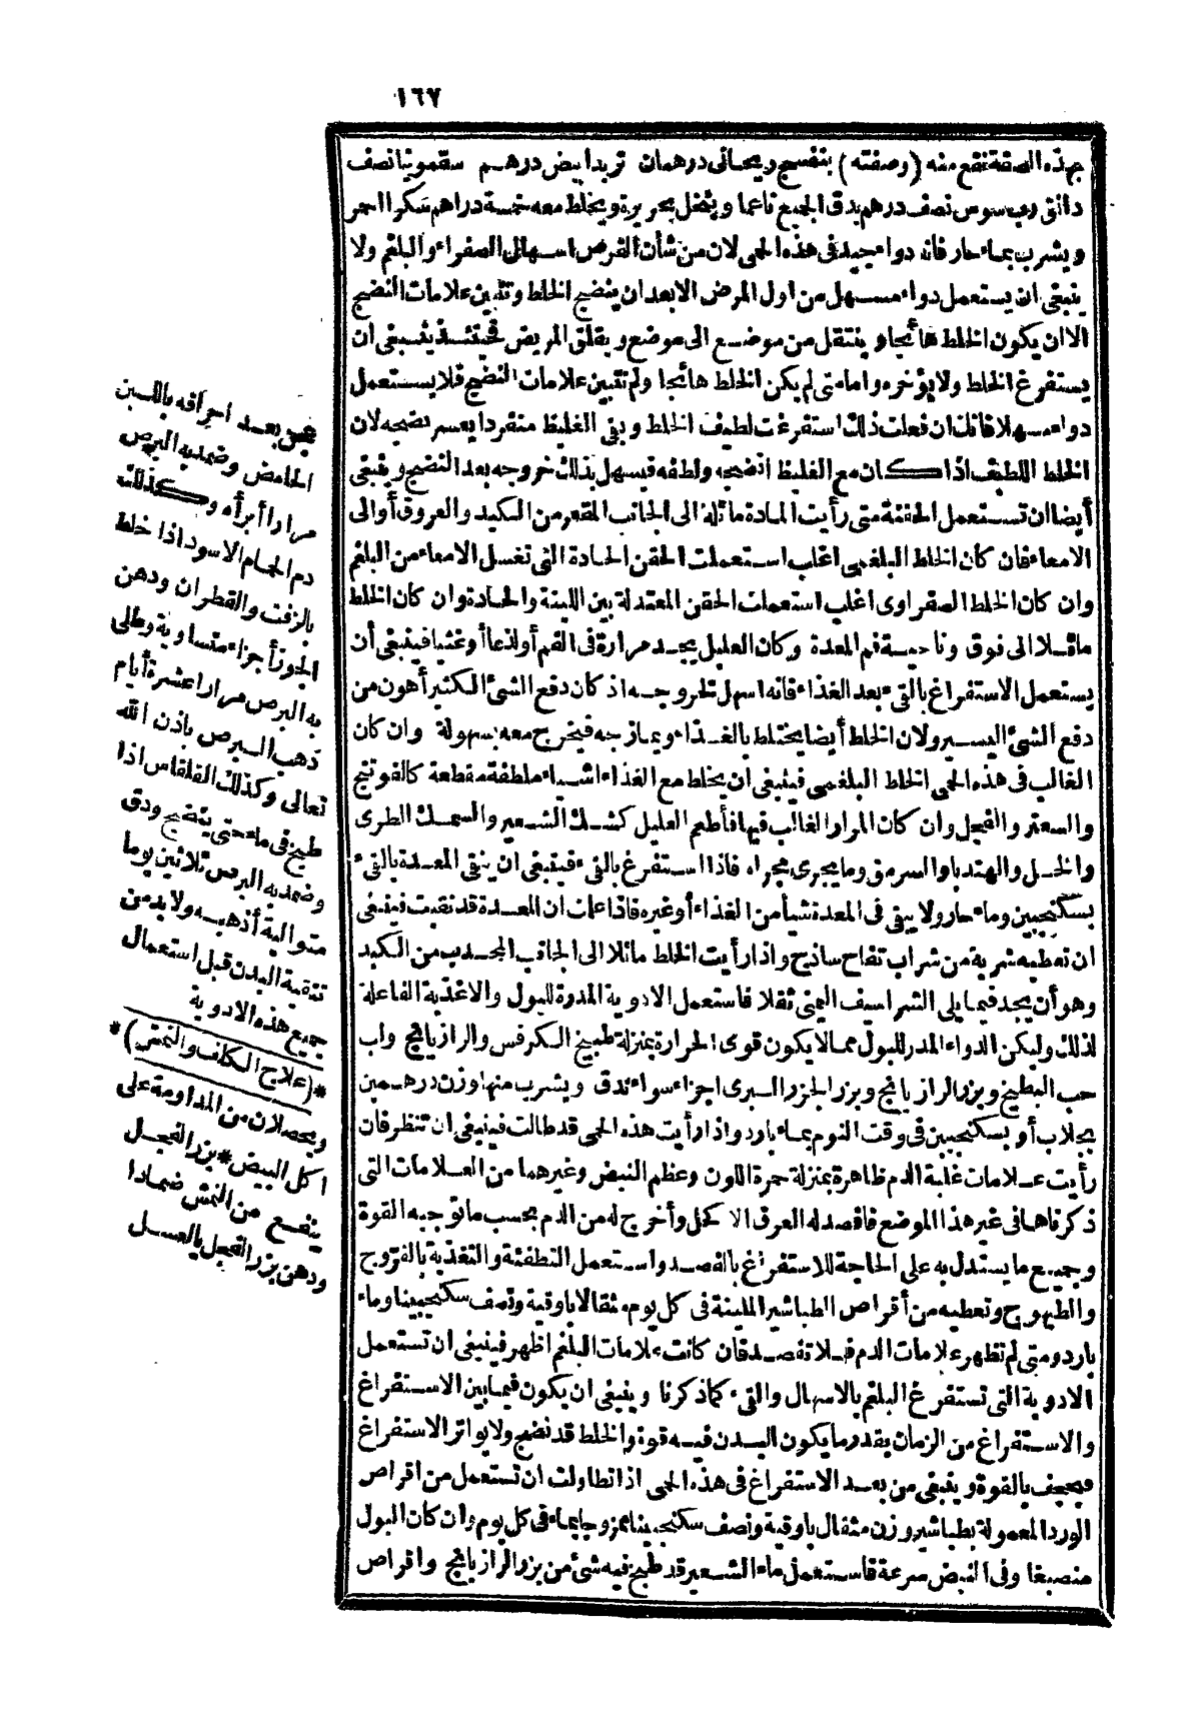 ١٦٧
بهذه الصفة تقع منه (وصفته) بنفسج ريحانى درهمان تربد ابيض درهم سقمونيا نصف
دانق رب سوس نصف درهم يدق الجميع ناعما وينخل بحريرة ويخلط معه خمسة دراهم سكر احمر
ويشرب بماء حار فانه دواء جيد فى هذه الحمى لان من شأن القرص اسهال الصفراء والبلغم ولا
ينبغى ان يستعمل دواء مسهل من اول المرض الا بعد ان ينضج الخلط وتتبين علامات النضج
الا ان يكون الخلط هائجا وينتقل من موضع الى موضع ويقلق المريض فحينئذ ينبغى ان
يستفرغ الخلط ولا يؤخره واما متى لم يكن الخلط هائجا ولم تتبين علامات النضج فلا يستعمل
دواء مسهلا فانك ان فعلت ذلك استفرغت لطيف الخلط وبقى الغليظ منفردا يعسر نضجه لان
الخلط اللطيف اذا كان مع الغليظ انضجه ولطفه فيسهل بذلك خروجه بعد النضج وينبغى
أيضا ان تستعمل الحقنة متى رأيت المادة مائلة الى الجانب المقعر من الكبد والعروق أو الى
الامعاء فان كان الخلط البلغمى اغلب استعملت الحقن الحادة التى تغسل الامعاء من البلغم
وان كان الخلط الصفراوى اغلب استعملت الحقن المعتدلة بين اللينة والحادة وان كان الخلط
مائلا الى فوق وناحية فم المعدة وكان العليل يجد مرارة فى الفم أو لذعا أو غثيا فينبغى أن
يستعمل الاستفراغ بالقىء بعد الغذاء فانه اسهل لخروجه اذ كان دفع الشئ الكثير أهون من
دفع الشئ اليسير ولان الخلط أيضا يختلط بالغذاء ويمازجه فيخرج معه بسهولة وان كان
الغالب فى هذه الحمى الخلط البلغمى فينبغى ان يخلط مع الغذاء اشياء ملطفة مقطعة كالفوتنج
والسعتر والفجل وان كان المرار الغالب فيها فأطعم العليل كشك الشعير والسمك الطرى
والخل والهندبا والسرمق وما يجرى مجراه فاذا استفرغ بالقىء فينبغى ان ينقى المعدة بالقىء
بسكنجبين وماء حار ولا يبقى فى المعدة شيأ من الغذاء أو غيره فاذا علمت ان المعدة قد نقيت فينبغى
ان تعطيه شربة من شراب تفاح ساذج واذا رأيت الخلط مائلا الى الجانب المحدب من الكبد
وهو أن يجد فيما يلى الشراسيف اليمنى ثقلا فاستعمل الادوية المدرة للبول والاغذية الفاعلة
لذلك وليكن الدواء المدر للبول مما لا يكون قوى الحرارة بمنزلة طبيخ الكرفس والرازيانج ولب
حب البطيخ وبزر الرازيانج وبزر الجزر البرى اجزاء سواء تدق ويشرب منها وزن درهمين
بجلاب أو بسكنجبين فى وقت النوم بماء بارد واذا رأيت هذه الحمى قد طالت فينبغى ان تنظر فان
رأيت علامات غلبة الدم ظاهرة بمنزلة حمرة اللون وعظم النبض وغيرهما من العلامات التى
ذكرناها فى غير هذا الموضع فافصد له العرق الاكحل وأخرج له من الدم بحسب ما توجبه القوة
وجميع ما يستدل به على الحاجة للاستفراغ بالفصد واستعمل التطفئة والتغذية بالفروج
والطيهوج وتعطيه من أقراص الطباشير الملينة فى كل يوم مثقالا باوقية ونصف سكنجبينا وماء
بارد ومتى لم تظهر علامات الدم فلا تفصد فان كانت علامات البلغم اظهر فينبغى ان تستعمل
الادوية التى تستفرغ البلغم بالاسهال والقىء كما ذكرنا وينبغى ان يكون فيما بين الاستفراغ
والاستفراغ من الزمان بقدر ما يكون البدن فيه قوة والخلط قد نضج ولا يواتر الاستفراغ
فيجحف بالقوة وينبغى من بعد الاستفراغ فى هذه الحمى اذا تطاولت ان تستعمل من اقراص
الورد المعمولة بطباشير وزن مثقال باوقية ونصف سكنجبينا ممزوجا بماء فى كل يوم وان كان البول
منصبغا وفى النبض سرعة فاستعمل ماء الشعير قد طبخ فيه شئ من بزر الرازيانج واقراص
بعد احراقه باللبن
الحامض وضمد به البرص
مرارا أبرأه وكذلك
دم الحمام الاسود اذا خلط
بالزفت والقطران ودهن
الجوز أجزاء متساوية وطلى
به البرص مرارا عشرة أيام
ذهب البرص باذن الله
تعالى وكذلك القلقاس اذا
طبخ فى ماء حتى ينضج ودق
وضمد به البرص ثلاثين يوما
متوالية أذهبه ولا بد من
تنقية البدن قبل استعمال
جميع هذه الادوية
*(علاج الكلف والنمش)*
ويحصلان من المداومة على
اكل البيض * بزر الفجل
ينفع من النمش ضمادا
ودهن بزر الفجل بالعسل